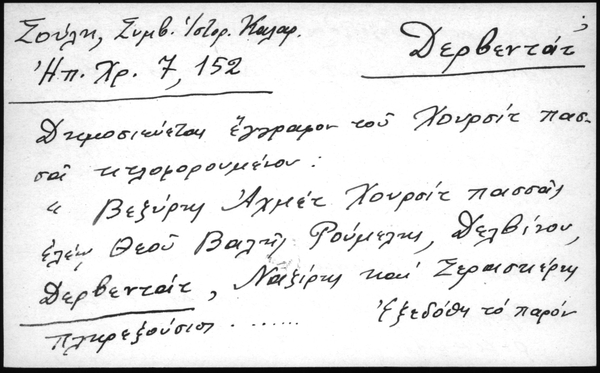 Σούλη, Συμβ. Ἱστορ. Καλαρ.
Ἠπ. Χρ. 7, 152
Δερβεντάτ
Δημοσιεύεται ἔγγραφον τοῦ Χουρσίτ πασ-
σᾶ τιτλοφορουμένου :
" Βεζύρης Ἀχμέτ Χουρσίτ πασσᾶς
ἐλέῳ Θεοῦ Βαλῆς Ρούμελης, Δελβίνου,
Δερβεντάτ, Ναζίρης καὶ Σερασκέρης
πληρεξούσιος ........ Ἐξεδόθη τό παρόν